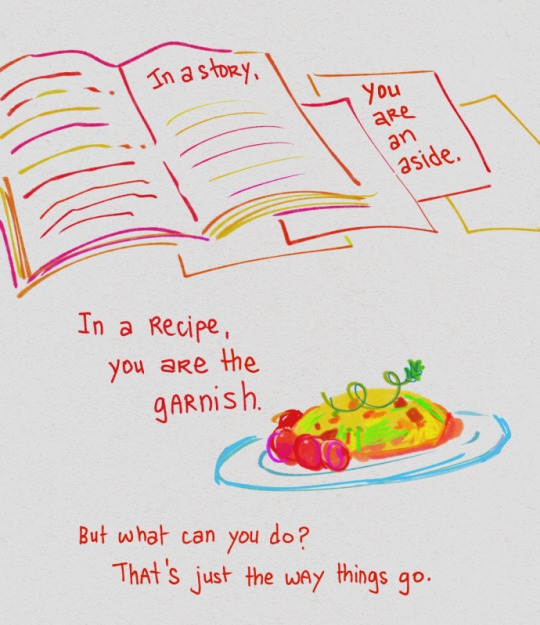 In a story,
You
are
an
aside.
In a Recipe,
you are the
garnish.
But what can you do?
That's just the way things go.